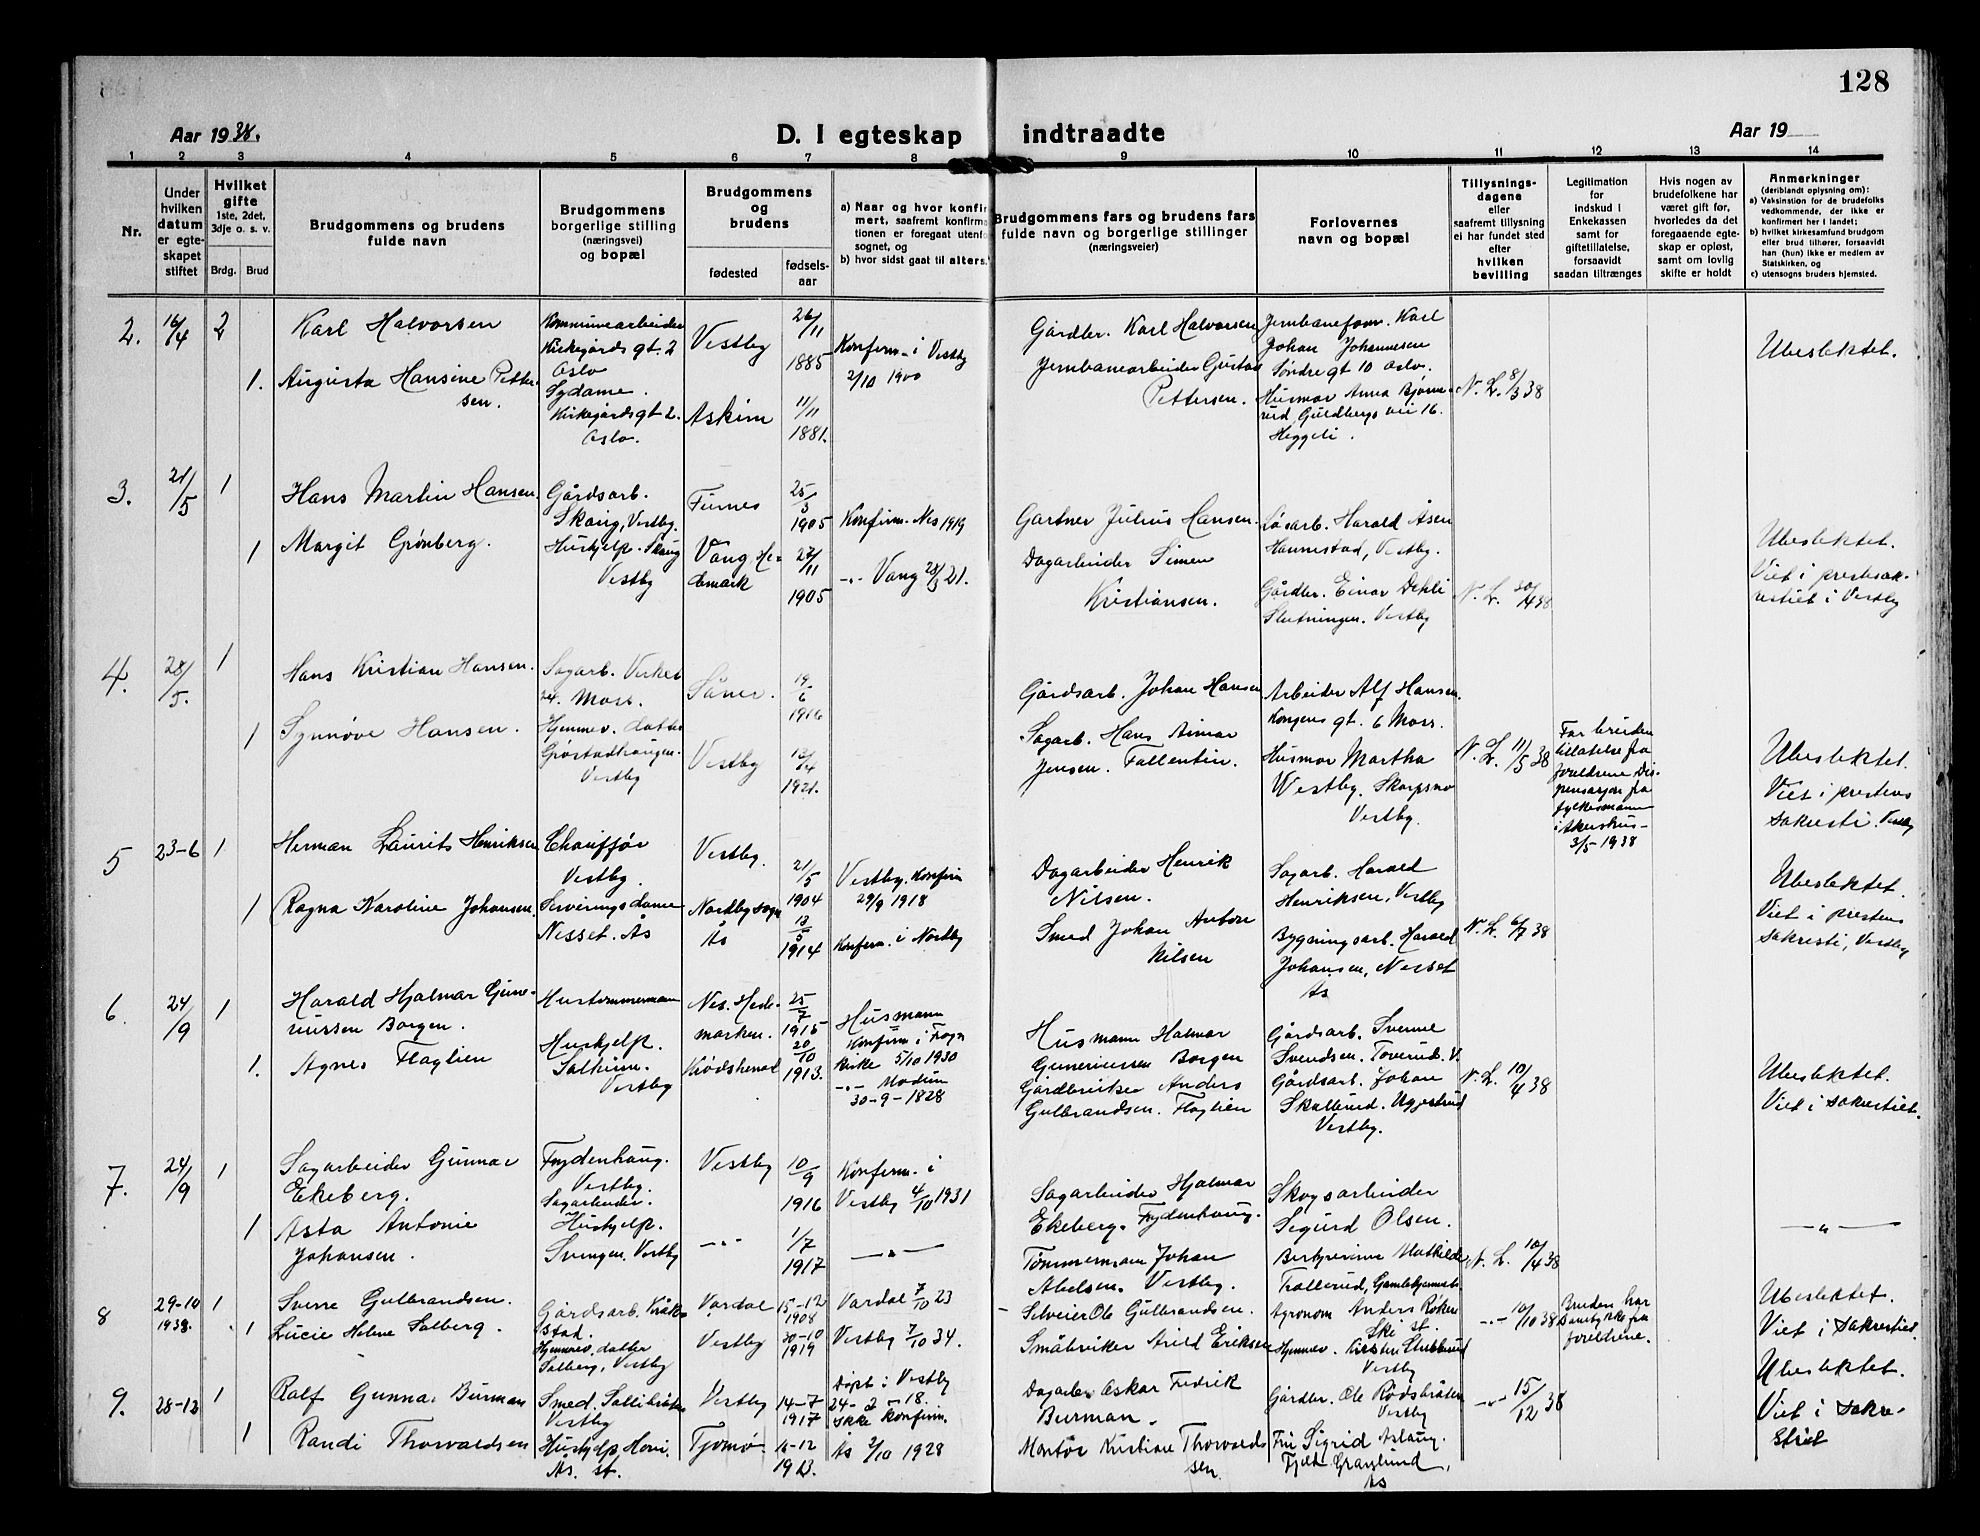 128
Aar 1938.
D. I egteskap indtraadte
Aar 19
1 2 3 4 5 6 7 8 9 10 11 12 13 14
Nr.
Under
hvilken
datum
er egte-
skapet
stiftet
Hvilket
gifte
1ste, 2det,
3dje o. s. v.
Brdg. Brud
Brudgommens og brudens
fulde navn
Brudgommens
borgerlige stilling
(næringsvei)
og bopæl
Brudgommens
og
brudens
fødested
fødsels-
aar
a) Naar og hvor konfir
mert, saafremt konfirm
tionen er foregaat utenfo
sognet, og
b) hvor sidst gaat til alters.
Brudgommens fars og brudens fars
fulde navn og borgerlige stillinger
(næringsveier)
Forlovernes
navn og bopæl
Tillysnings-
dagene
eller
saafremt tillysning
ei har fundet sted
efter
hvilken
bevilling
Legitimation
for
indskud i
Enkekassen
samt for
giftetillatelse,
forsaavidt
saadan tiltrænges
Hvis nogen av
brudefolkene har
været gift før,
hvorledes da det
foregaaende egte-
skap er opløst,
samt om lovlig
skifte er holdt
Anmerkninger
(deriblandt oplysning om):
a) Vaksination for de brudefolks
vedkommende, der ikke er
konfirmert her i landet;
b) hvilket kirkesamfund brudgom
eller brud tilhører, forsaavidt
han (hun) ikke er medlem av
Statskirken, og
c) utensogns bruders hjemsted.
2.
16/4
2
Karl Halvorsen
Kommunearbeider
Kirkegårds gt. 2
Oslo
Vestby
26/11
1885
Konfirm. i Vestby
2/10 1900
Gårdbr. Karl Halvorsen
Jernbaneform. Karl
Johan Johannesen
Søndre gt 10 Oslo.
Ubeslektet.
1.
Augusta Hansine Petter-
sen.
Sydame.
Kirkegårdsgt 2.
Oslo.
Askim
11/11
1881.
Jernbanearbeider Gustav
Pettersen.
Husmor Anna Bjørne-
rud, Guldbergs vei 16.
Heggeli.
N. L. 8/3 38
3.
21/5
1
Hans Martin Hansen.
Gårdsarb.
Skaug, Vestby.
Furnes
25/3
1905
Konfirm. Nes 1919
Gartner Julius Hansen.
Løsarb. Harald Åsen
Hannestad, Vestby.
Ubeslektet.
Viet i prestesak-
ristiet i Vestby
1
Margit Grønberg.
Hushjelp. Skaug
Vestby
Vang He-
demark
27/11
1905
-"- Vang 28/3 21.
Dagarbeider Simen
Kristiansen.
Gårdbr. Einar Dehli
Slutningen. Vestby
N. L. 30/4 38
4.
28/5.
1
Hans Kristian Hansen.
Sagarb. Verket
pr. Moss.
Såner.
19/6
1916
Gårdsarb. Johan Hansen
Arbeider Alf Hansen.
Kongens gt. 6 Moss.
1
Synnøve Hansen.
Hjemmev. datter
Grøstadhaugen.
Vestby
Vestby
12/4
1921.
Sagarb. Hans Aimar
Jensen. Fallentin.
Husmor Martha
Vestby. Skorpsno
Vestby.
N. L. 11/5 38
For bruden
tillatelse fra
foreldrene Dis-
pensasjon fra
fylkesmann
i Akershus-
3/5-1938
Ubeslektet.
Viet i prestens
sakresti. Vestby
5
23-6
1
Herman Laurits Henriksen
Chauffør
Vestby.
Vestby.
21/5
1904
Vestby. Konfirm
29/9 1918
Dagarbeider Henrik
Nilsen.
Sagarb. Harald
Henriksen, Vestby
Ubeslektet.
Viet i prestens
sakresti, Vestby
1
Ragna Karoline Johansen.
Serveringsdame
Nesset. Ås
Nordby sogn
Ås
13/5
1914
Konfirm. i Nordby
Smed Johan Anton
Nilsen
Bygningsarb. Harald
Johansen, Nesset
Ås
N. L. 6/7 38
6.
24/9
1
Harald Hjalmar Gune-
riussen Borgen.
Hustømmermann
Nes. Hede-
marken.
25/7
1915
Husmann
Konfirm i Fron
Kirke 5/10 1930
Husmann Halmar
Guneriussen Borgen
Gårdsarb. Svenne
Svendsen. Toverud. V.
1.
Agnes Flaglien
Hushjelp.
Solheim.
Vestby
Krødsherad
20/10
1913.
-"- Modum
30-9-1828
Gårdbruker Anders
Gulbrandsen. Flaglien
Gårdsarb. Johan
Skallerud. Uggestrud
Vestby.
N. L. 10/4 38
Ubeslektet.
Viet i sakrestiet.
7.
24/9
1
Sagarbeider Gunnar
Ekeberg.
Frydenhaug.
Vestby.
Sagarbeider.
Vestby
10/9
1916
Konfirm. i
Vestby 4/10 1931
Sagarbeider Hjalmar
Ekeberg. Frydenhaug.
Skogsarbeider
Sigurd Olsen.
1
Asta Antonie
Johansen.
Hushjelp.
Svingen. Vestby
-"-
1/7
1917
-"-
Tømmermann Johan
Abelsen. Vestby.
Bestyrerinne Mathilde
Trollerud, Gamlehjemmet.
N. L. 10/4 38
-"-
8
29-10
1938.
1
Sverre Gulbrandsen.
Gårdsarb. Kråk-
stad.
Vardal
15-12
1908
Vardal 7/10 23
Selveier Ole Gulbrandsen.
Agronom Anders Røken
Ski st.
-"- 10/10 38
Bruden har
samtykke fra
foreldrene.
Ubeslektet.
Viet i sakrestiet.
1
Lucie Helene Solberg.
Hjemmev. datter
Solberg, Vestby
Vestby
30-10
1919
Vestby 7/10 34.
Småbruker Arild Eriksen
Hjemmev. Kirsten Stubberud
Vestby
9.
28-12
1
Rolf Gunnar Burman
Smed. Sollibråten
Vestby
Vestby
14-7
1917
Døpt i Vestby
24-2-18.
ikke konfirm.
Dagarb. Oskar Fredrik
Burman.
Gårdbr. Ole Rødsbråten
Vestby
-"- 15/12 38
Ubeslektet.
Viet i sakre-
stiet
1
Randi Thorvaldsen
Hushjelp
Ås. st.
Tjømø
11-12
1913.
Ås 2/10 1928
Montør Kristian Thorvald-
sen
Fru Sigrid Aslaug
Granlund,
Ås